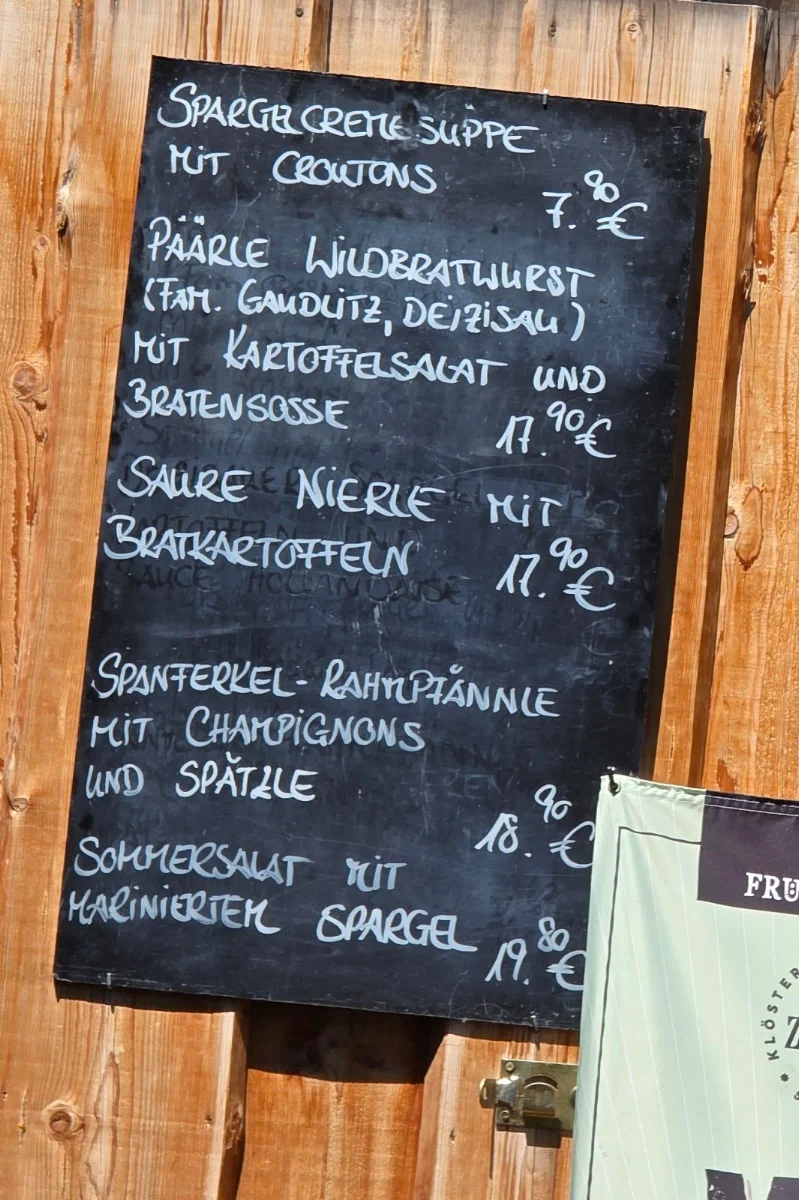 SPARGELCREMESUPPE
MIT CROUTONS
7.90€
PÄÄRLE WILDBRATWURST
(FAM. GAUDLITZ, DEIZISAU)
MIT KARTOFFELSALAT UND
BRATENSOSSE
17.90€
SAURE NIERLE MIT
BRATKARTOFFELN
17.90€
SPANFERKEL-RAHMPFÄNNLE
MIT CHAMPIGNONS
UND SPÄTZLE
18.90€
SOMMERSALAT MIT
MARINIERTEM SPARGEL
19.80€
FRÜ
KLÖSTER
Z